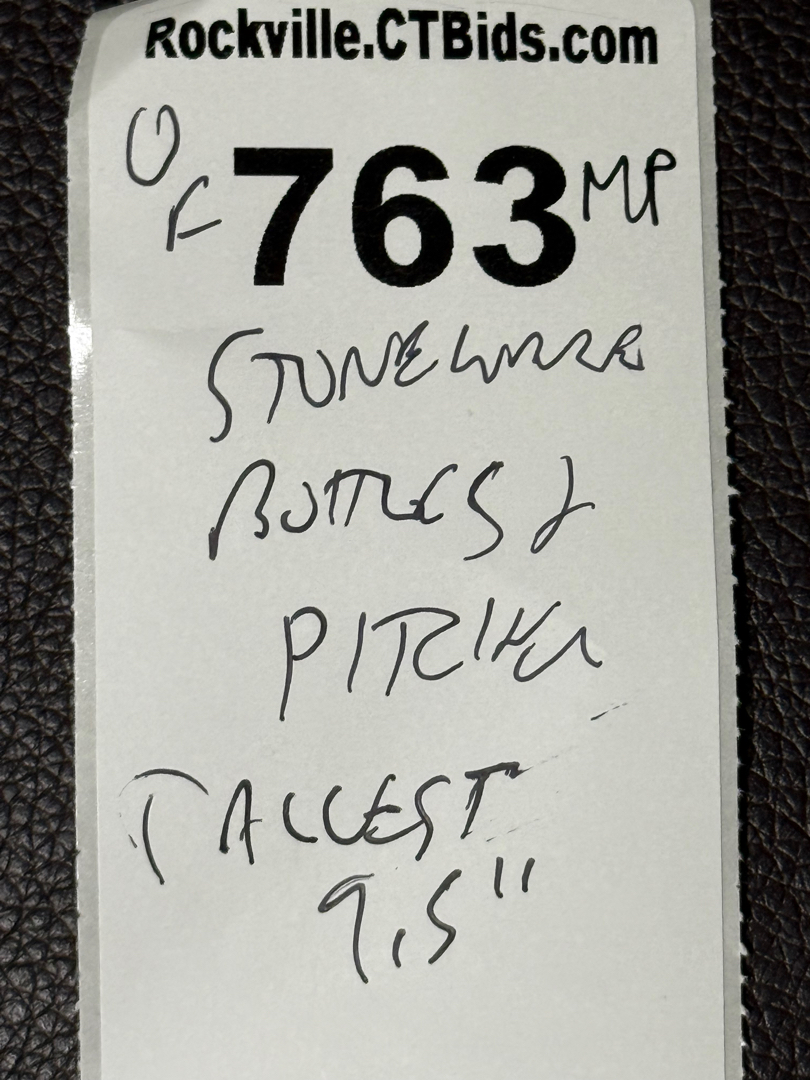 Rockville.CTBids.com
O F 763 MP
STONEWARE
BOTTLES &
PITCHER
TALLEST
9.5"